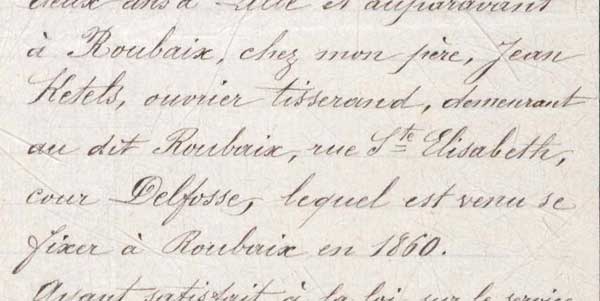 deux ans à Lille et auparavant
à Roubaix, chez mon père, Jean
Ketels, ouvrier tisserand, demeurant
au dit Roubaix, rue Ste Elisabeth,
cour Delfosse, lequel est venu se
fixer à Roubaix en 1860.
Ayant satisfait à la loi sur le service